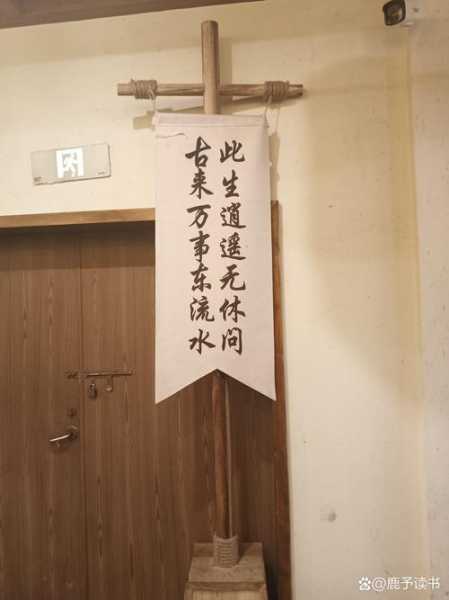 此生逍遥无休问
古来万事东流水
@鹿予读书